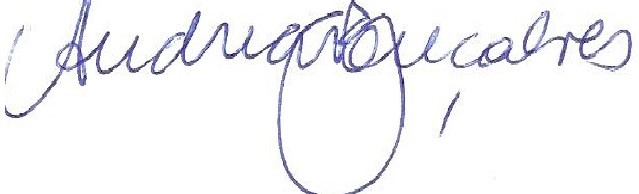 Andrea Gonçalves